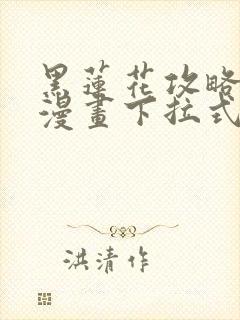 黑蓮花攻略
漫畫下拉式
洪清作